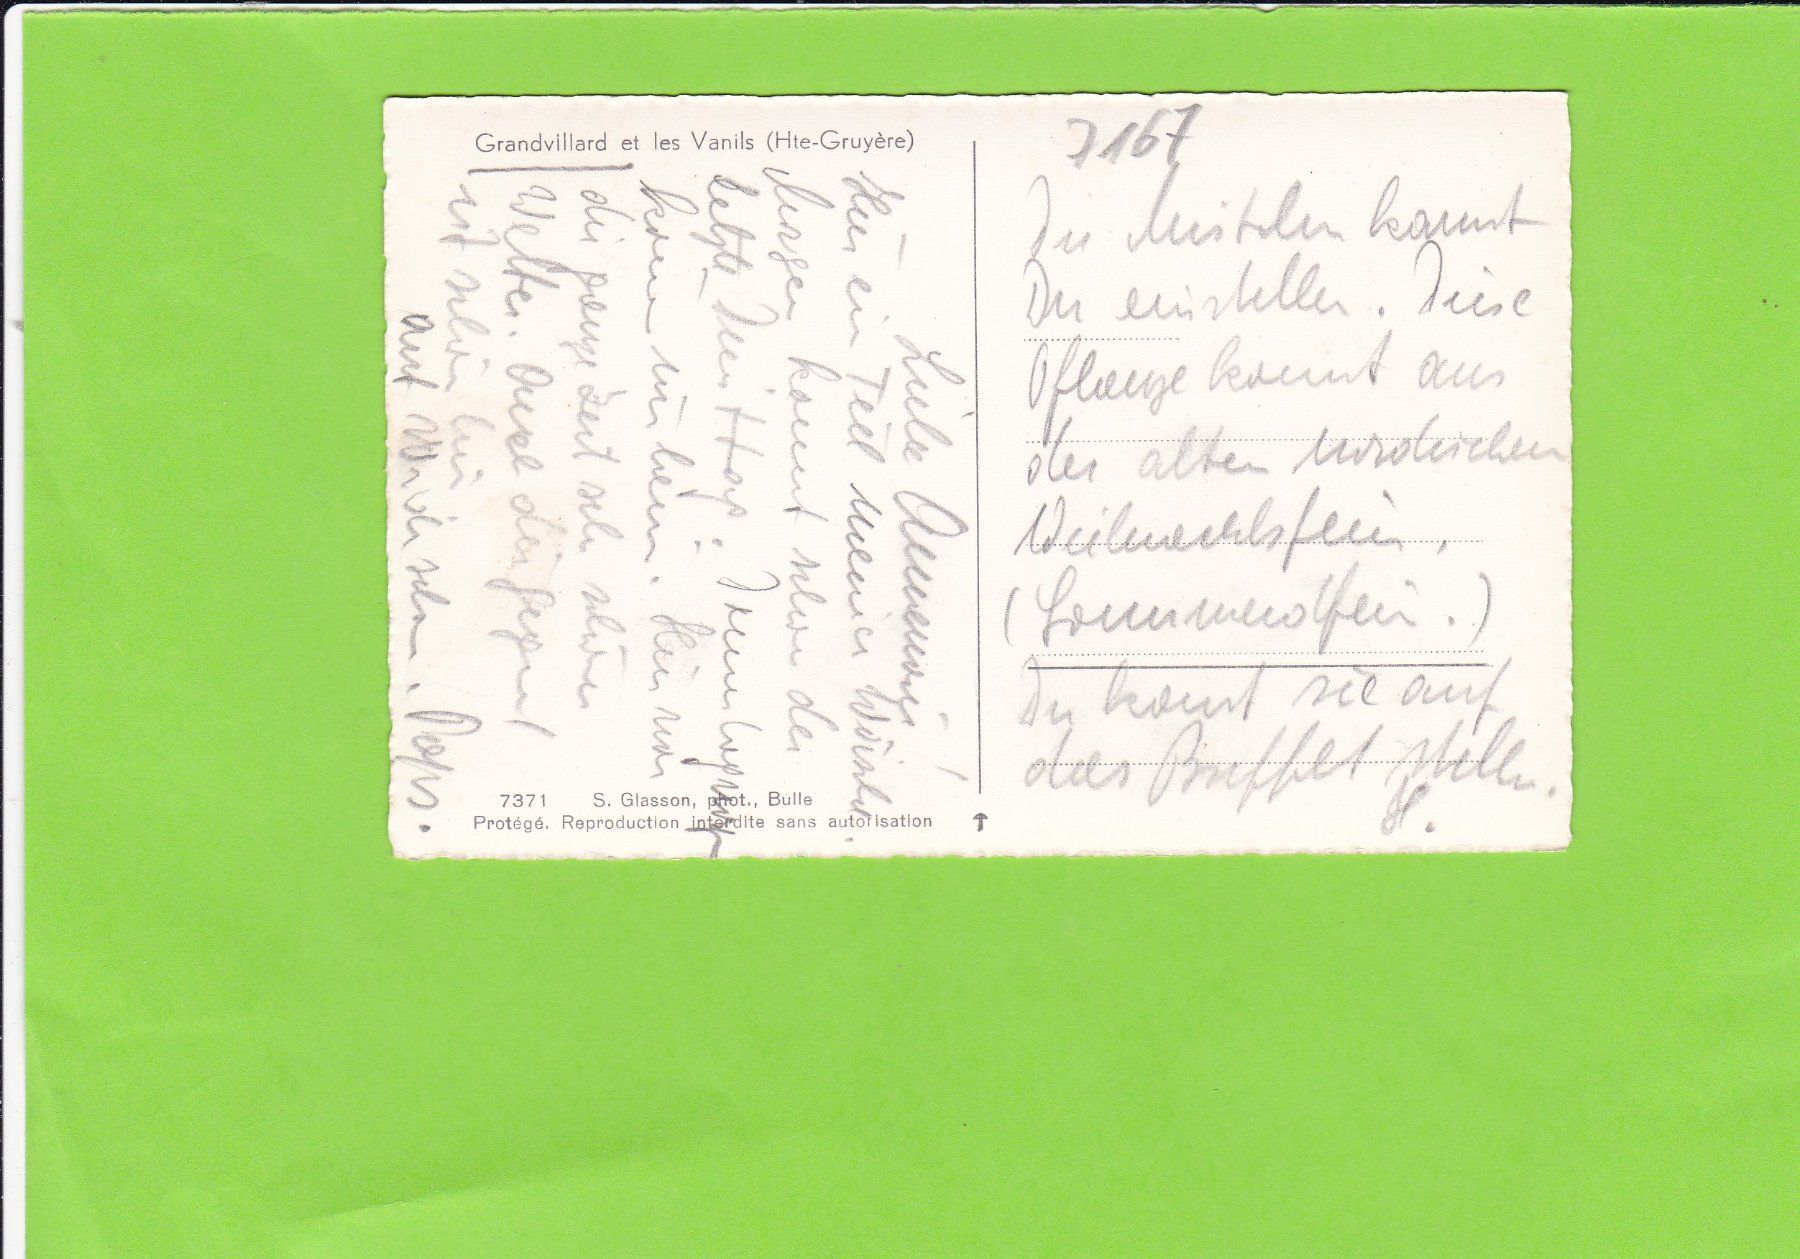 Grandvillard et les Vanils (Hte-Gruyère)
Liebe Annemarie!
Hier ein Teil meiner Wünsche.
Morgen kommt schon der
letzte Tag.
kommen wir heim. Hier war
die ganze Zeit sehr schönes
Wetter. Auch die Gegend
ist schön hier
auf Wiedersehn. Paps.
7371 S. Glasson, phot., Bulle
Protégé. Reproduction interdite sans autorisation
7167
Die Misteln kannst
Du einstellen. Diese
Pflanze kommt aus
der alten nordischen
Weihnachtsfeier.
(Sonnwendfeier.)
Du kannst sie auf
das Buffet stellen.